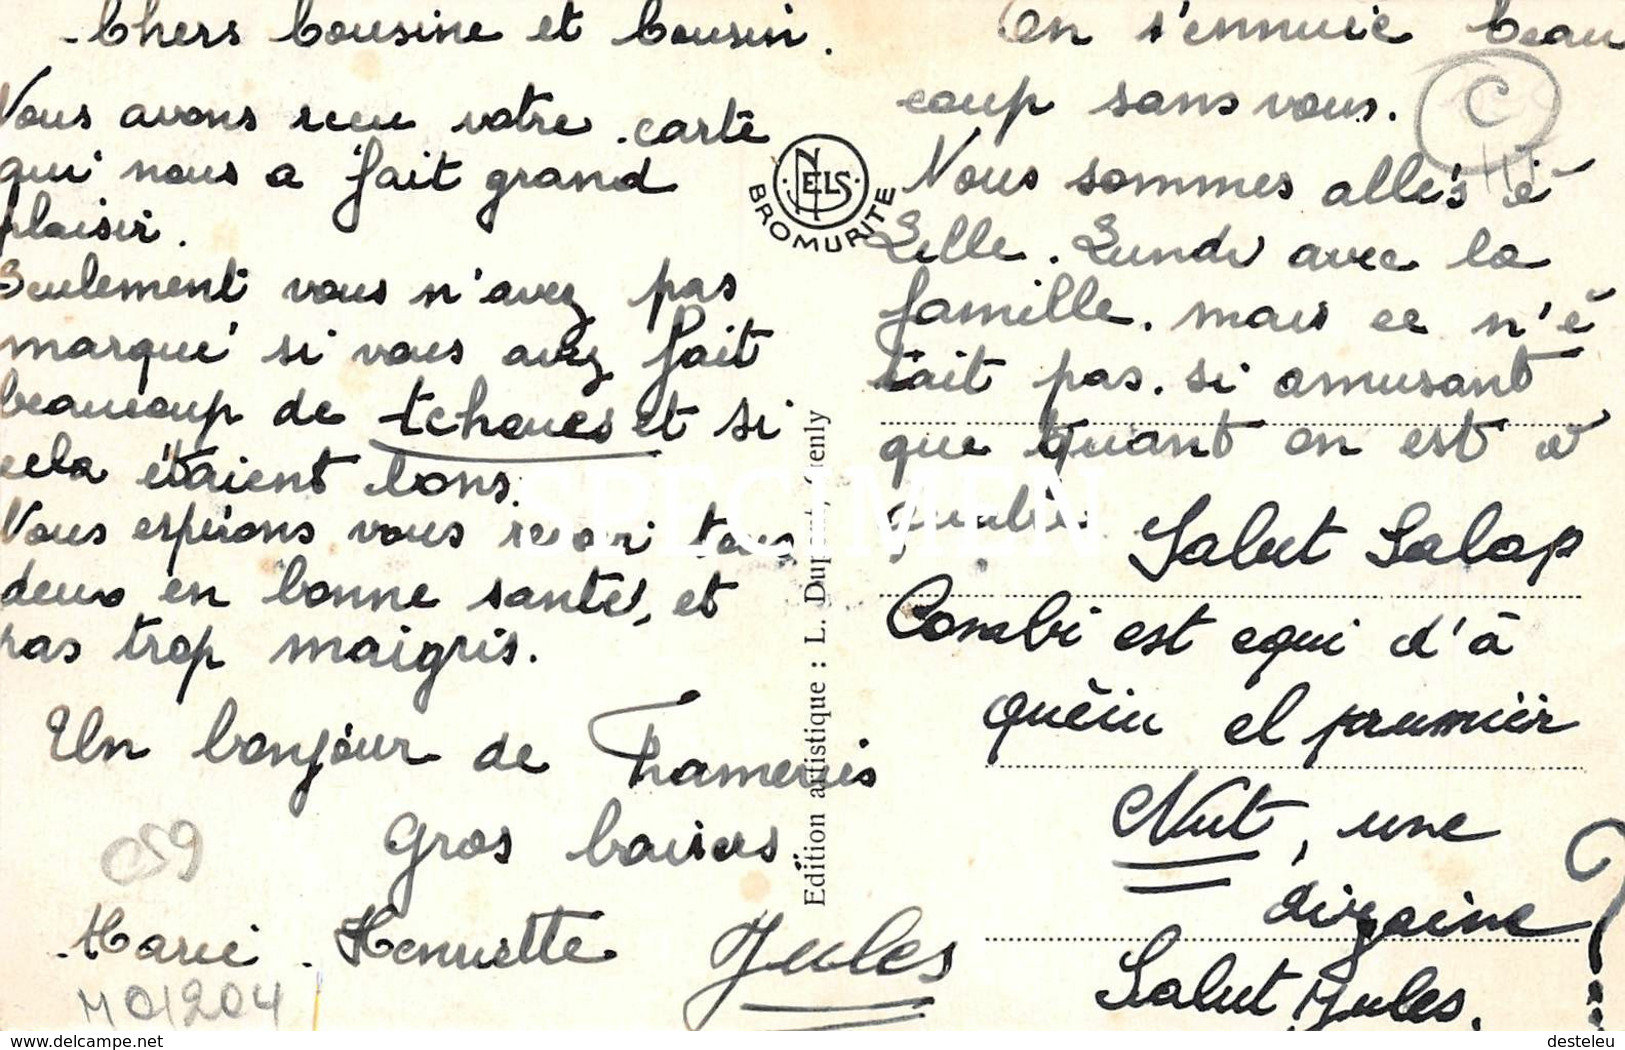 Chers Cousine et Cousin.
Nous avons reçu votre carte
qui nous a fait grand
plaisir.
Seulement vous n'avez pas
marqué si vous avez fait
beaucoup de tchoues et si
cela étaient bons.
Nous espérons vous revoir tous
deux en bonne santé, et
pas trop maigris.
Un bonjour de Frameries
Gros baisers
Marie - Henriette Jules
C59
MO1204
NELS
BROMURITE
Edition artistique : L. Dupont,
SPECIMEN
On s'ennuie beau
coup sans vous.
C
Nous sommes allés é
Lille. Lundi avec la
famille. mais ce n'é
tait pas si amusant
que quant on est à
Salut Salop
Combi est equi d'à
quèiu el prumiìr
Nut, une
dizaine ?
Salut Jules.
desteleu